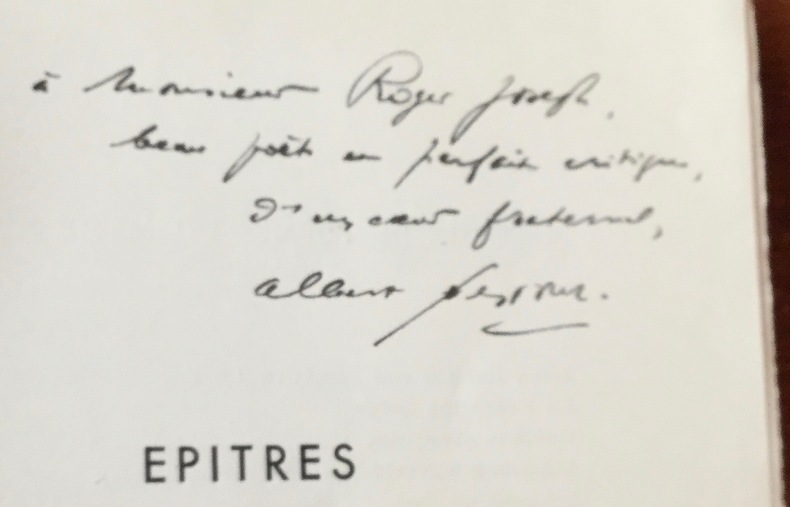 à Monsieur Roger Joseph,
beau poète en parfait critique,
d'un cœur fraternel,
Albert
EPITRES